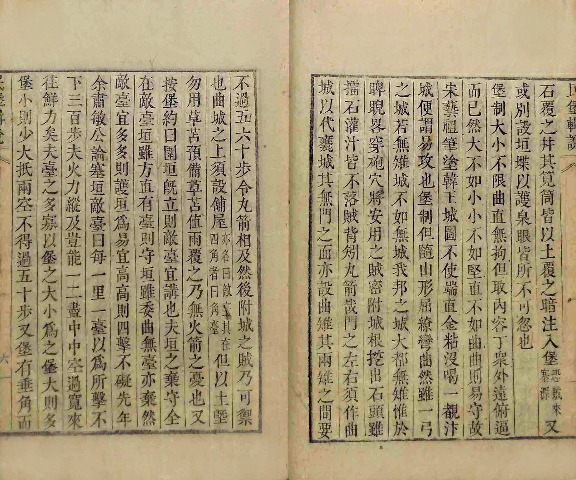 民堡輯說
石覆之幷其筧筒皆以土覆之暗注入堡恐敵來塞源又
或別設垣堞以護泉眼皆所不可忽也
堡制大小不限曲直無拘但取內容丁衆外遠俯逼
而已然大不如小小不如堅直不如曲曲則易守故
宋藝祖筆塗韓王城圖不使端直金粘沒喝一觀汴
城便謂易攻也堡制但隨山形屈繚彎曲然雖一弓
之城若無雉城不如無城我邦之城大都無雉惟於
睥睨畧穿砲穴將安用之賊密附城根挖出石頭雖
擂石灌汁皆不落賊背矧丸箭哉門之左右須作曲
城以代甕城其無門之面亦設曲雉其兩雉之間要
不過五六十步令丸箭相及然後附城之賊乃可禦
也曲城之上須設鋪屋亦名曰敵臺其在四角者曰角臺但以土墍
勿用草苫預備草苫值雨覆之乃無火箭之憂也又
按堡約曰圍垣旣立則敵臺宜講也夫垣之棄守全
在敵臺垣雖方直有臺則守垣雖委曲無臺亦棄然
敵臺宜多多則護垣爲易宜高高則四擊不礙先年
余肅敏公論塞垣敵臺曰每一里一臺以爲所擊不
下三百步夫火力縱及豈能一二盡中中空過寬來
往鮮力矣夫臺之多寡以堡之大小爲之堡大則多
堡小則少大抵兩空不得過五十步又堡有垂角而
民堡輯說
六